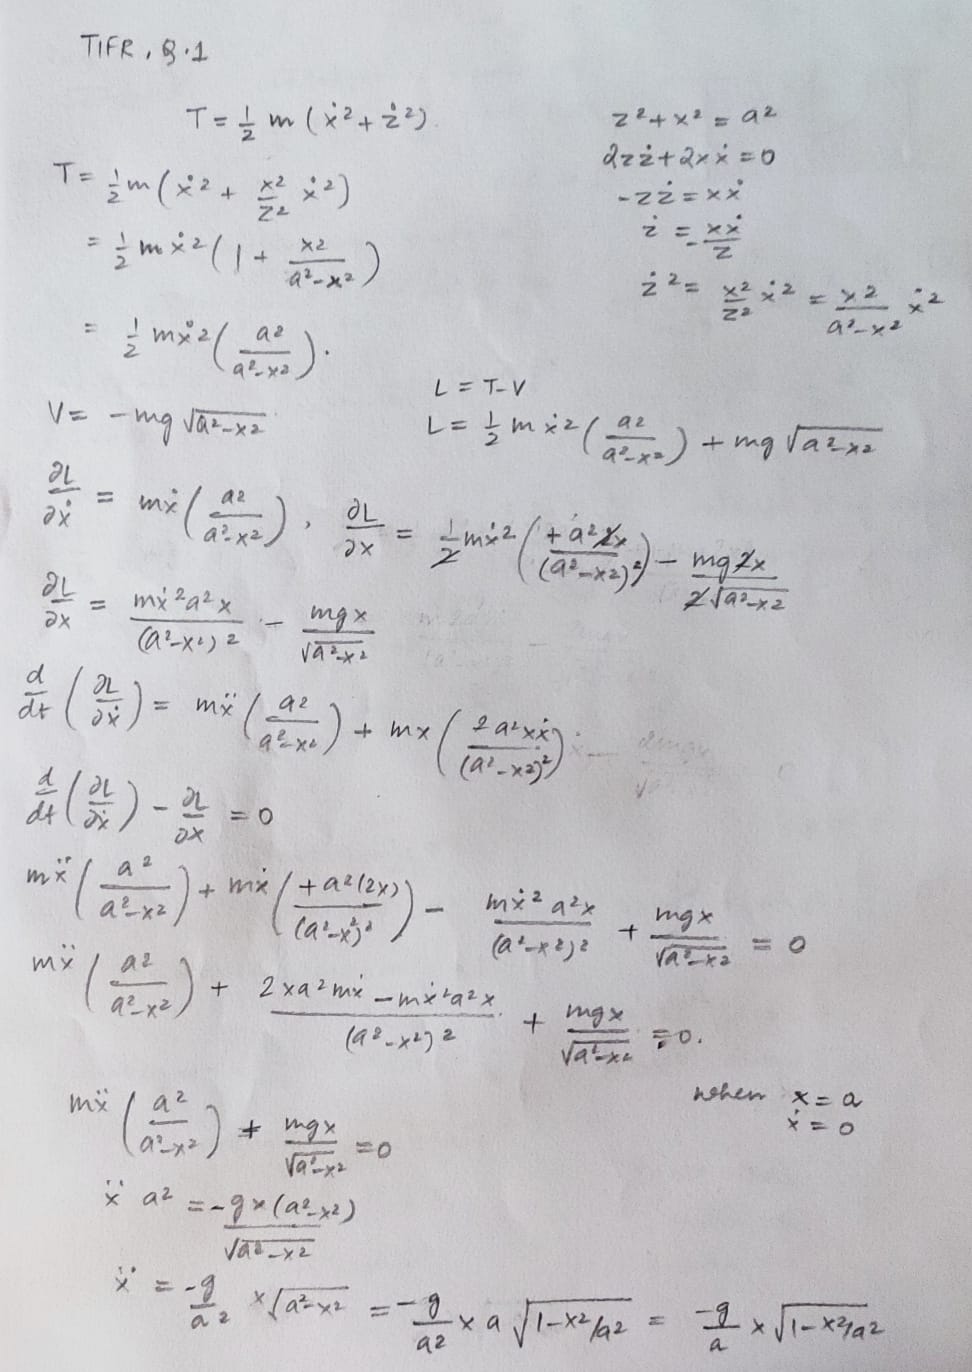 TIFR, Q.1
T = 1/2 m (ẋ² + ż²)
z² + x² = a²
2zż + 2xẋ = 0
T = 1/2 m (ẋ² + x²/z² ẋ²)
-zż = xẋ
= 1/2 m ẋ² (1 + x²/(a²-x²))
ż = -xẋ/z
ż² = x²/z² ẋ² = x²/(a²-x²) ẋ²
= 1/2 mẋ² (a²/(a²-x²)).
L = T-V
V = -mg √(a²-x²)
L = 1/2 m ẋ² (a²/(a²-x²)) + mg √(a²-x²)
∂L/∂ẋ = mẋ (a²/(a²-x²)), ∂L/∂x = 1/2 mẋ² (+a²2x/(a²-x²)²) - mg2x/(2√(a²-x²))
∂L/∂x = mẋ²a²x/(a²-x²)² - mgx/√(a²-x²)
d/dt (∂L/∂ẋ) = mẍ (a²/(a²-x²)) + mx (2a²xẋ/(a²-x²)²)
d/dt (∂L/∂ẋ) - ∂L/∂x = 0
mẍ (a²/(a²-x²)) + mẋ (+a²(2x)/(a²-x²)²) - mẋ² a²x/(a²-x²)² + mgx/√(a²-x²) = 0
mẍ (a²/(a²-x²)) + (2xa²mẋ - mẋ²a²x)/(a²-x²)² + mgx/√(a²-x²) = 0.
when x = a
ẋ = 0
mẍ (a²/(a²-x²)) + mgx/√(a²-x²) = 0
ẍ a² = -gx(a²-x²)/√(a²-x²)
ẍ = -g/a² x√(a²-x²) = -g/a² x a √(1-x²/a²) = -g/a x √(1-x²/a²)